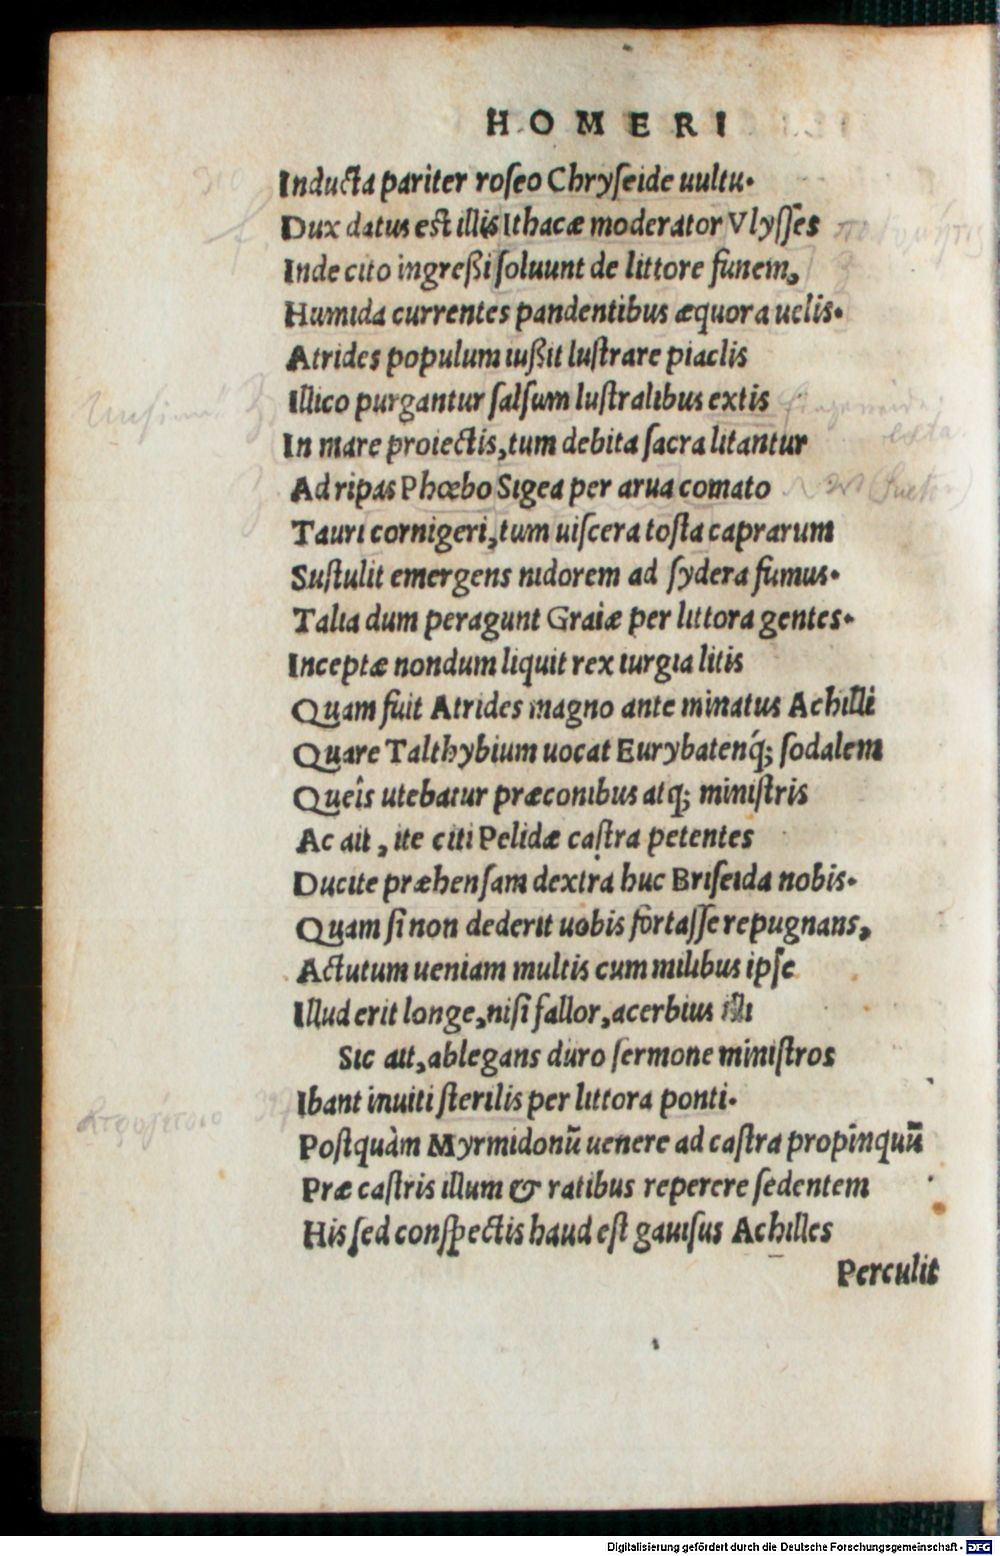 HOMERI
Inducta pariter roſeo Chryſeide uultu.
Dux datus est illis Ithacæ moderator Vlyſſes πολυμήτις
Inde cito ingreßi ſoluunt de littore funem,
Humida currentes pandentibus æquora uelis.
Atrides populum iußit luſtrare piaclis
Illico purgantur ſalſum luſtralibus extis
In mare proiectis, tum debita ſacra litantur exta.
Ad ripas Phœbo Sigea per arua comato
Tauri cornigeri, tum uiſcera toſta caprarum
Suſtulit emergens nidorem ad ſydera fumus.
Talia dum peragunt Graiæ per littora gentes.
Inceptæ nondum liquit rex iurgia litis
Quam fuit Atrides magno ante minatus Achilli
Quare Talthybium uocat Eurybatenq́; ſodalem
Queîs utebatur præconibus atq; miniſtris
Ac ait, ite citi Pelidæ caſtra petentes
Ducite præhenſam dextra huc Briſeida nobis.
Quam ſi non dederit uobis fortaſſe repugnans,
Actutum ueniam multis cum milibus ipſe
Illud erit longe, niſi fallor, acerbius illi
Sic ait, ablegans duro ſermone miniſtros
Ibant inuiti ſterilis per littora ponti.
Poſtquàm Myrmidonũ uenere ad caſtra propinquũ
Præ caſtris illum & ratibus reperere ſedentem
His ſed conſpectis haud eſt gauiſus Achilles
Perculit
Digitalisierung gefördert durch die Deutsche Forschungsgemeinschaft - DFG